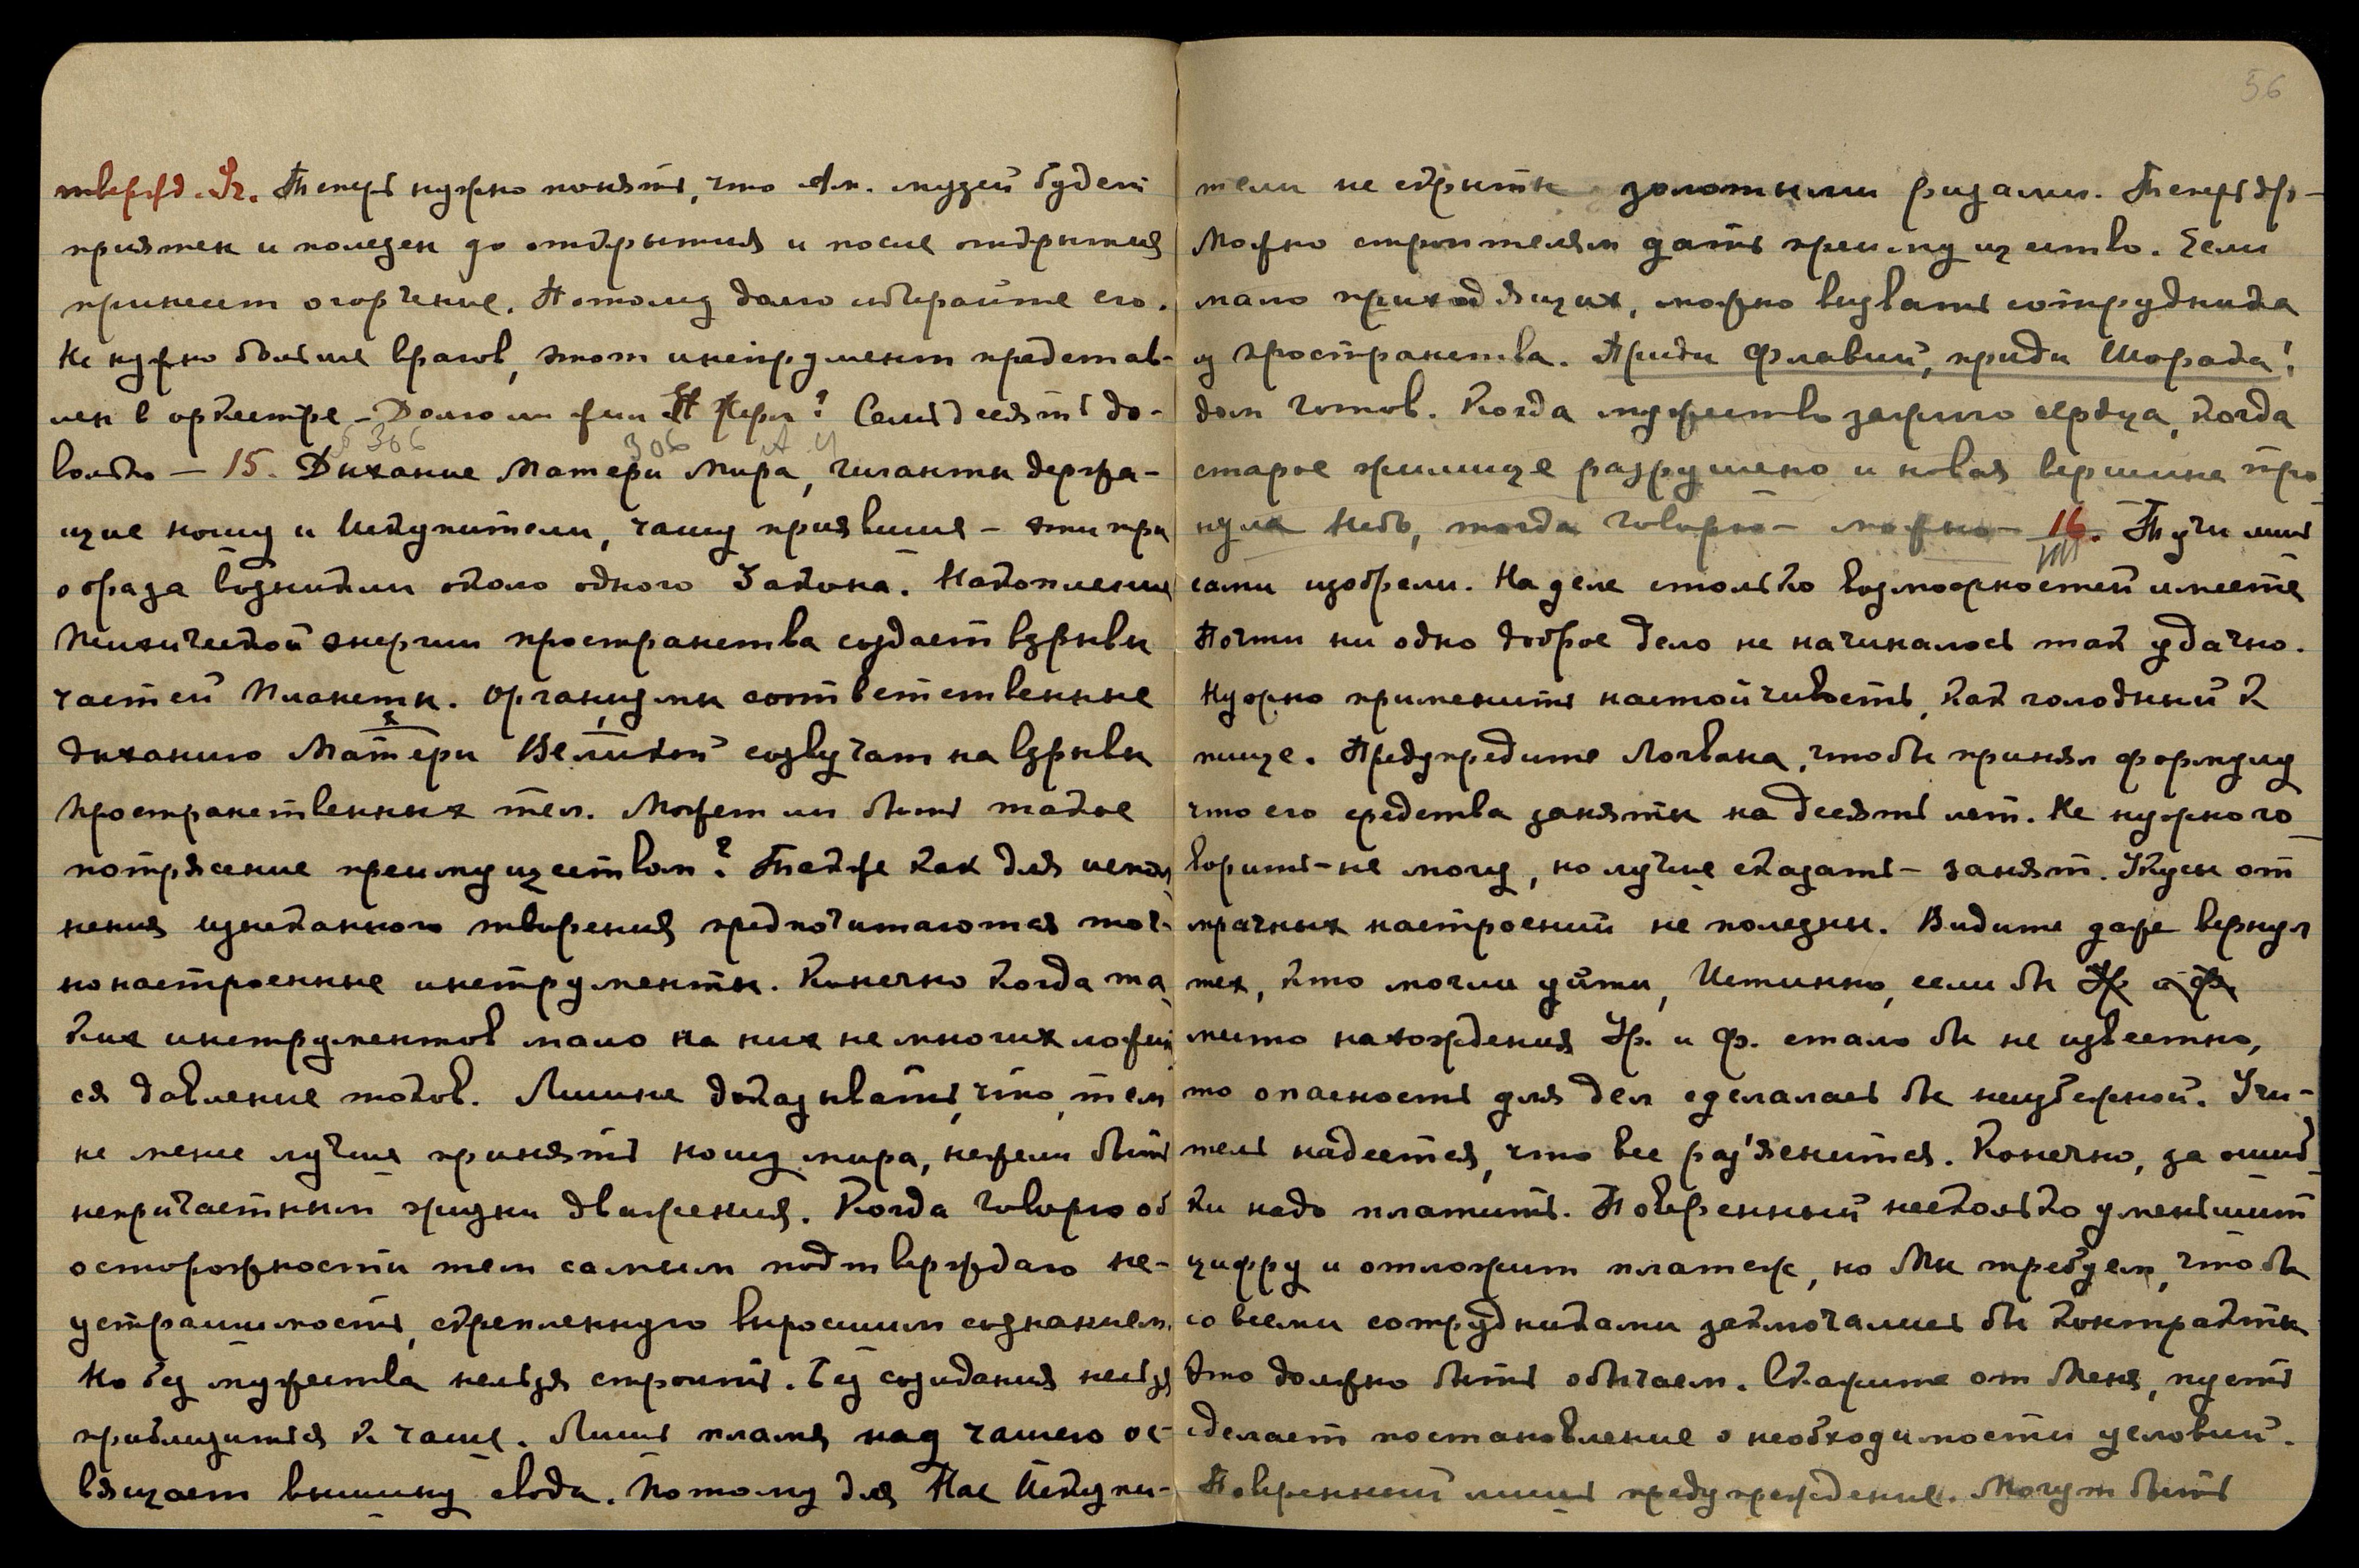 твержд. Уч. Теперь нужно понять, что Ам. музей будет
приятен и полезен до открытия и после открытия
принесет огорчение. Потому дано избирайте его.
Не нужно больше врагов, этот инструмент представ-
лен в оркестре – Долго ли жил Перм? Семьдесят до-
§ 306 306 А Й
вольно – 15. Дыхание Матери Мира, гиганты держа-
щие ношу и Искупители, чашу приявшие – эти три
образа возникли около одного Закона. Накопление
Психической энергии пространства создает взрывы
частей Планеты. Организмы соответственные
дыханию Матери Великой созвучат на взрывы
пространственных тел. Может ли быть такое
потрясение преимуществом? Также как для испол
нения изысканного творения предпочитаются точ-
но настроенные инструменты. Конечно когда та
ких инструментов мало на них немногих ложит
ся давление токов. Лишне доказывать, что, тем
не менее лучше принять ношу мира, нежели быть
непричастным жизни движения. Когда говорю об
осторожности тем самым подтверждаю не-
устрашимость, скрепленную выросшим сознанием.
Но без мужества нельзя строить. Без созидания нельзя
приблизиться к чаше. Лишь пламя над чашею ос-
вящает вышину свода. Потому для Нас Искупи-
56
тели не скрыты золотыми ризами. Теперь др –
Можно строителям дать преимущество. Если
мало приходящих, можно вызвать сотрудника
из пространства. Приди Флавий, приди Шорака!
дом готов. Когда мужество зажгло сердца, когда
старое жилище разрушено и новая вершина про
нзила Небо, тогда говорю – можно – 16. Тучи лишь
VIII
сами изобрели. На деле столько возможностей имеете
Почти ни одно доброе дело не начиналось так удачно.
Нужно применить настойчивость, как голодный к
пище. Предупредите Логвана, чтобы принял формулу
что его средства заняты на десять лет. Не нужно го
ворить – не могу, но лучше сказать – занят. Укусы от
мрачных настроений не полезны. Видите даже вернул
тех, кто могли уйти, Истинно, если бы Ур. и Ф.
место нахождения Ур. и Ф. стало бы не известно,
то опасность для дел сделалась бы неизбежной. Учи-
тель надеется, что все раз'яснится. Конечно, за ошиб
ки надо платить. Поверенный несколько уменьшит
цифру и отложит платеж, но Мы требуем, чтобы
со всеми сотрудниками заключались бы контракты
Это должно быть обычаем. Скажите от Меня, пусть
сделает постановление о необходимости условий.
Поверенный лишь предупреждение. Могут быть